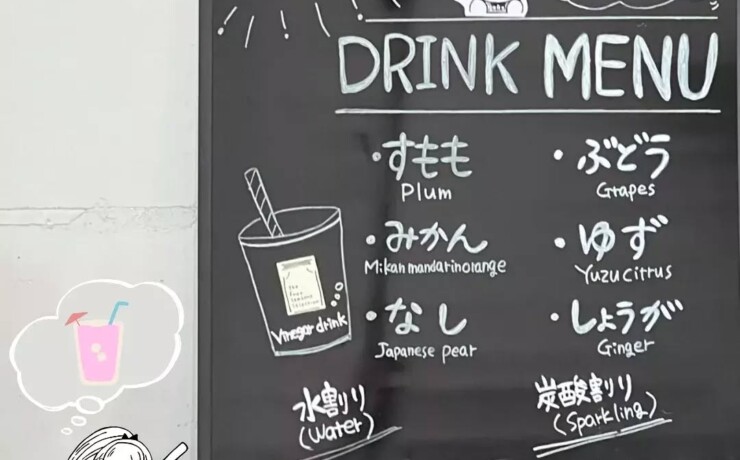 DRINK MENU
・すもも
Plum
・ぶどう
Grapes
・みかん
Mikan mandarin orange
・ゆず
Yuzu citrus
・なし
Japanese pear
・しょうが
Ginger
Vinegar drink
水割り
(Water)
炭酸割り
(Sparkling)